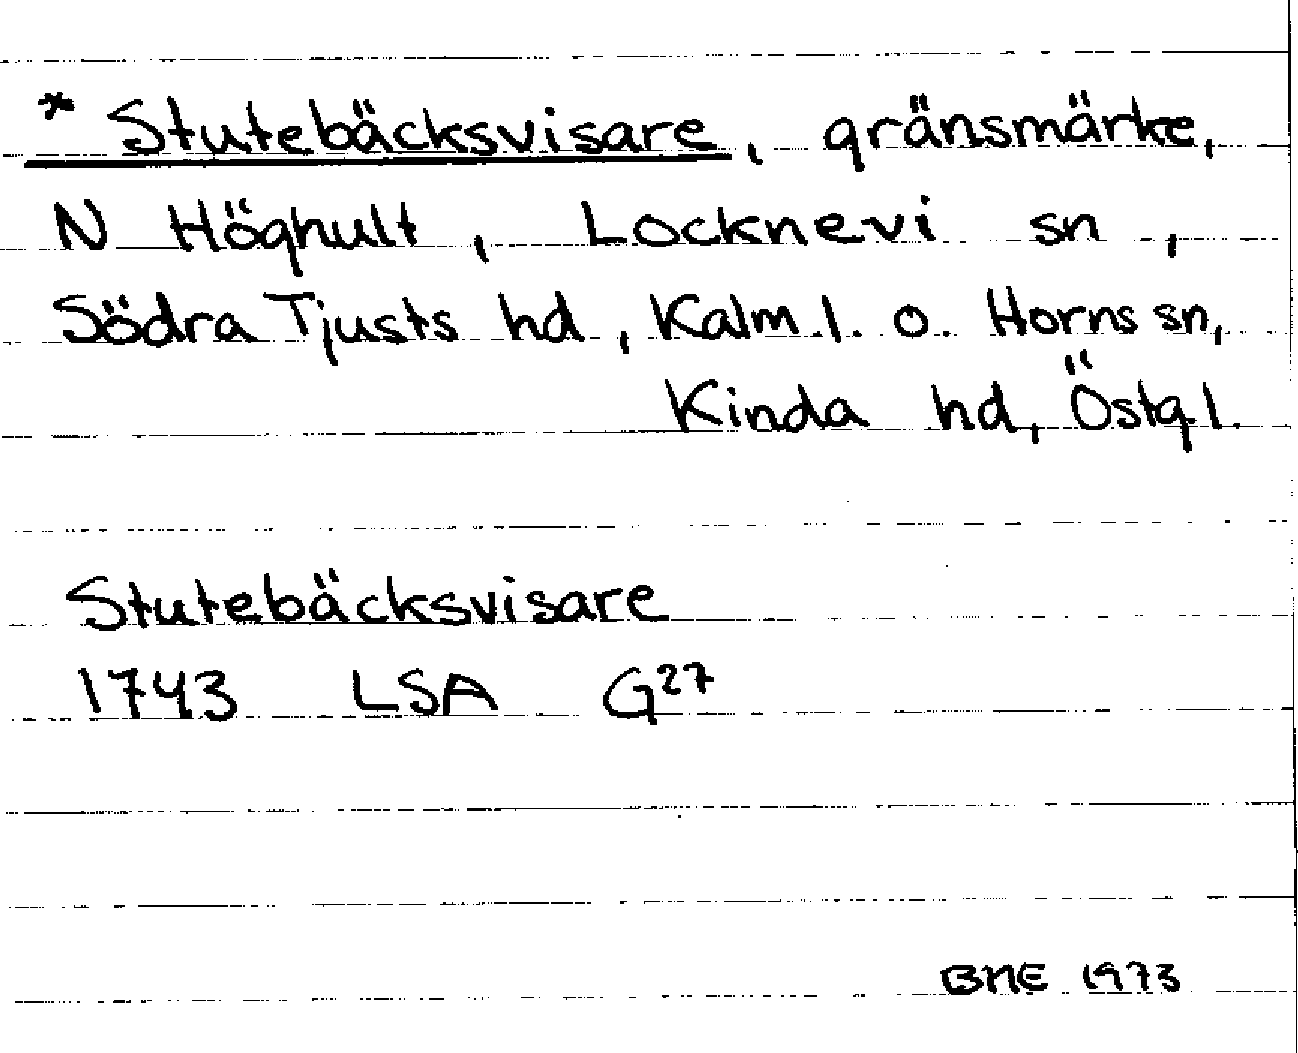 * Stutebäcksvisare, gränsmärke,
N Höghult, Locknevi sn,
Södra Tjusts hd, Kalm.l. o. Horns sn,
Kinda hd, Östg.l.
Stutebäcksvisare
1743 LSA G27
BNE 1973